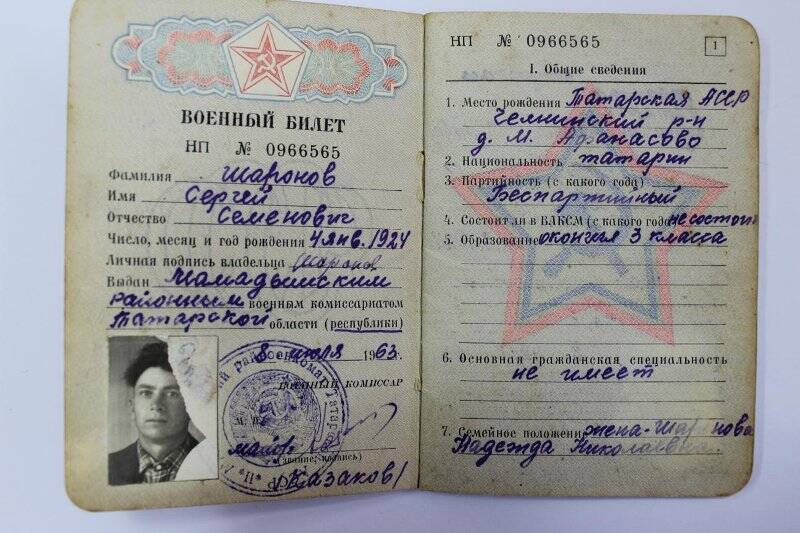 ВОЕННЫЙ БИЛЕТ
НП № 0966565
Фамилия Шаронов
Имя Сергей
Отчество Семенович
Число, месяц и год рождения 4 янв. 1924
Личная подпись владельца Шаронов
Выдан Мамадышским
районным военным комиссариатом
Татарской области (республики)
8 июля 1963 г.
ВОЕННЫЙ КОМИССАР
майор
(звание, подпись)
/Казаков/
НП № 0966565
1
1. Общие сведения
1. Место рождения Татарская АССР
р-н
д. М. Афанасово
2. Национальность татарин
3. Партийность (с какого года)
Беспартийный
4. Состоит ли в ВЛКСМ (с какого года) не состоит
5. Образование окончил 3 класса
6. Основная гражданская специальность
не имеет
7. Семейное положение жена - Шаронова
Надежда Николаевна